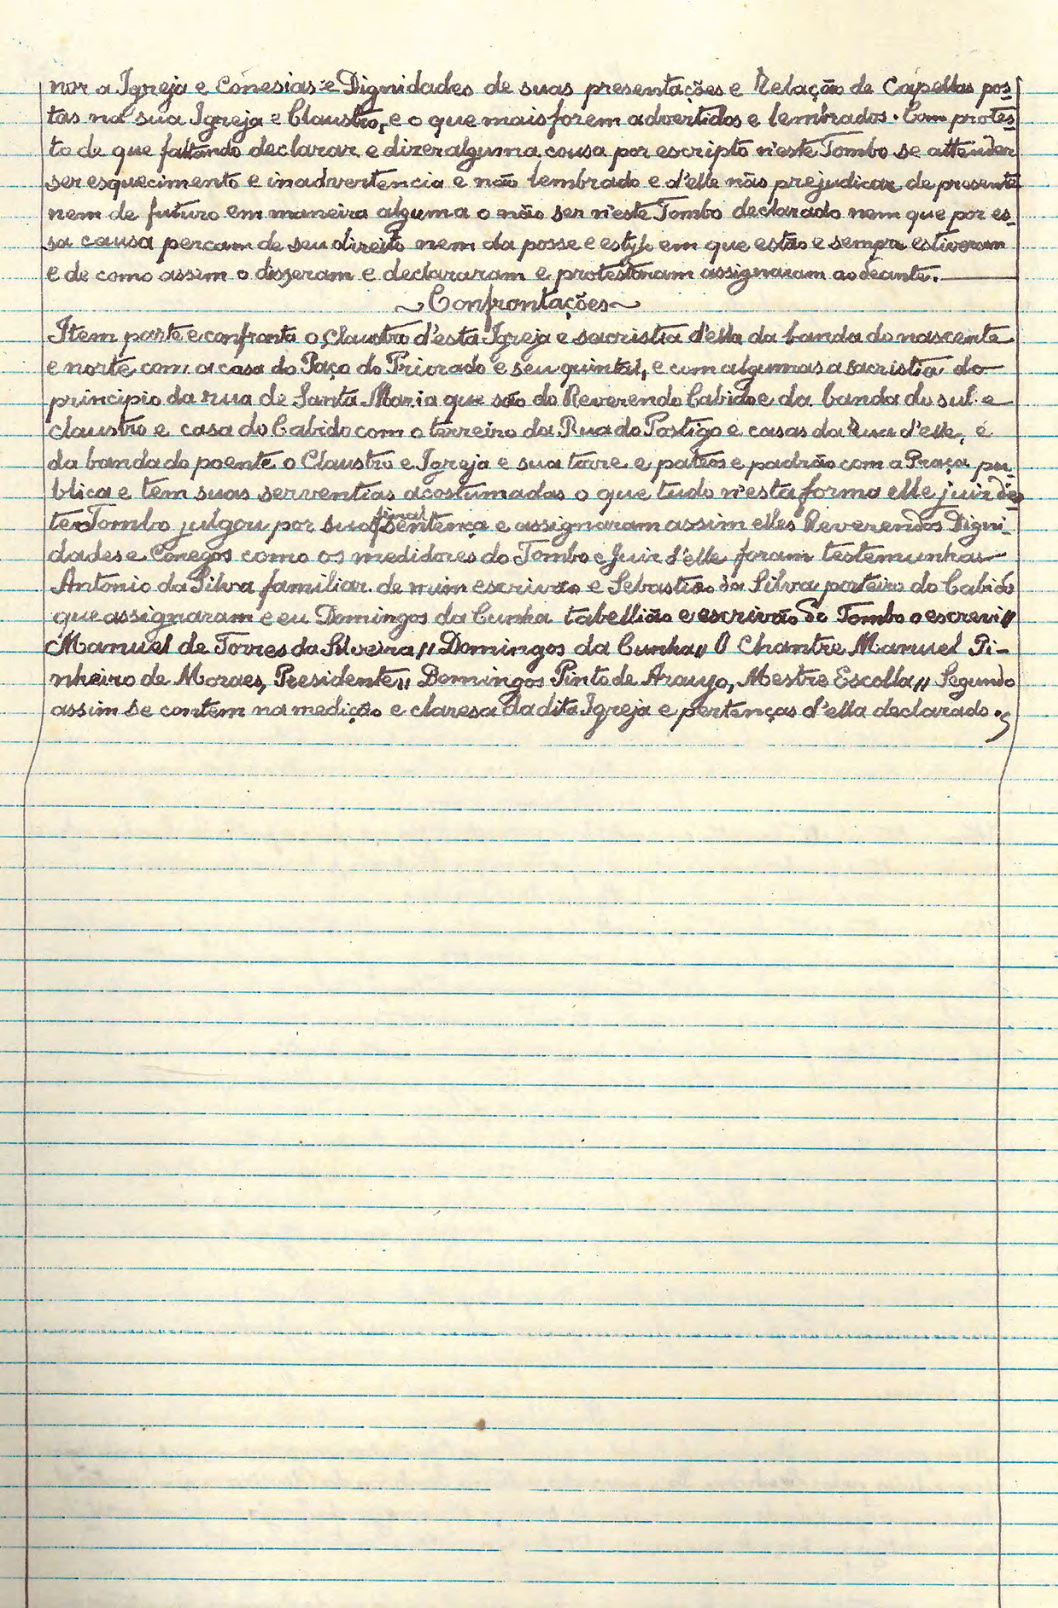 nor a Igreja e Conesias e Dignidades de suas presentações e Relação de Capellas pos-
tas na sua Igreja e Claustro, e o que mais forem advertidos e lembrados. Com protes-
to de que faltando declarar e dizer alguma cousa por escripto n'este Tombo se attender
ser esquecimento e inadvertencia e não lembrado e d'elle não prejudicar de presente
nem de futuro em maneira alguma o não ser n'este Tombo declarado nem que por es-
sa causa percam de seu direito nem da posse e estylo em que estão e sempre estiveram
e de como assim o disseram e declararam e protestaram assignaram ao deante.
~Confrontações~
Item parte e confronta o Claustro d'esta Igreja e sacristia d'ella da banda do nascente
e norte com a casa do Paço do Priorado e seu quintal, e com algumas a sacristia do
principio da rua de Santa Maria que são do Reverendo Cabido e da banda do sul e
claustro e casa do Cabido com o terreiro da Rua do Postigo e casas da Rua d'elle, e
da banda do poente o Claustro e Igreja e sua torre e pateos e padrão com a Praça pu-
blica e tem suas serventias acostumadas o que tudo n'esta forma elle juiz des-
te Tombo julgou por sua final sentença e assignaram assim elles Reverendos Digni-
dades e Conegos como os medidores do Tombo e Juiz d'elle foram testemunhas
Antonio da Silva familiar de mim escrivão e Sebastião da Silva porteiro do Cabido
que assignaram e eu Domingos da Cunha tabellião e escrivão do Tombo o escrevi //
Manuel de Torres da Silveira // Domingos da Cunha // O Chantre Manuel Pi-
nheiro de Moraes, Presidente // Domingos Pinto de Araujo, Mestre Escolla // Segundo
assim se contem na medição e claresa da dita Igreja e pertenças d'ella declarado.